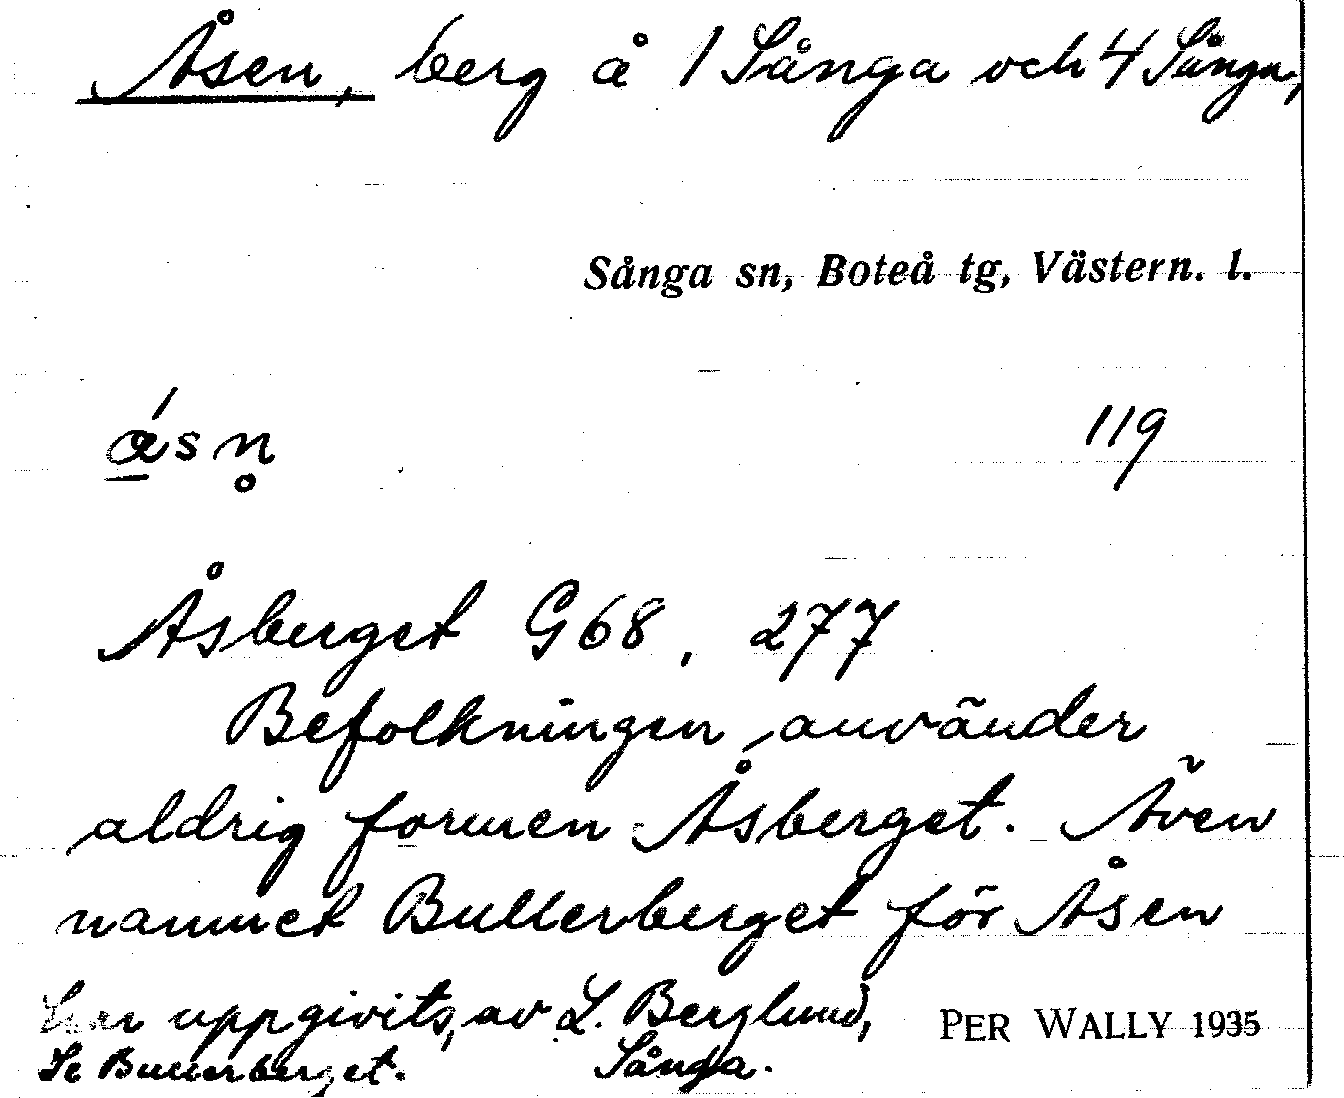 Åsen, berg å 1 Sånga och 4 Sånga,
Sånga sn, Boteå tg, Västern. l.
119
Åsberget G68, 277
Befolkningen använder
aldrig formen Åsberget. Även
namnet Bullerberget för Åsen
har uppgivits, av L. Berglund,
Sånga.
Se Bullerberget.
PER WALLY 1935